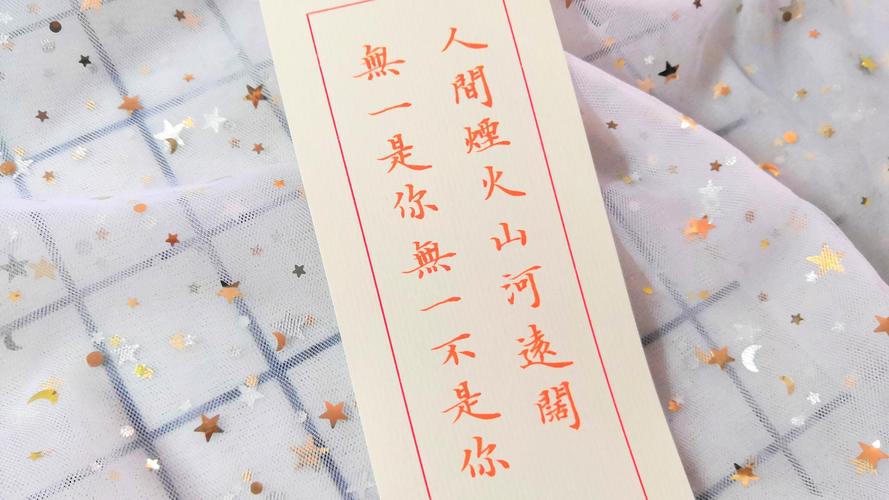 人間煙火山河遠闊
無一是你無一不是你